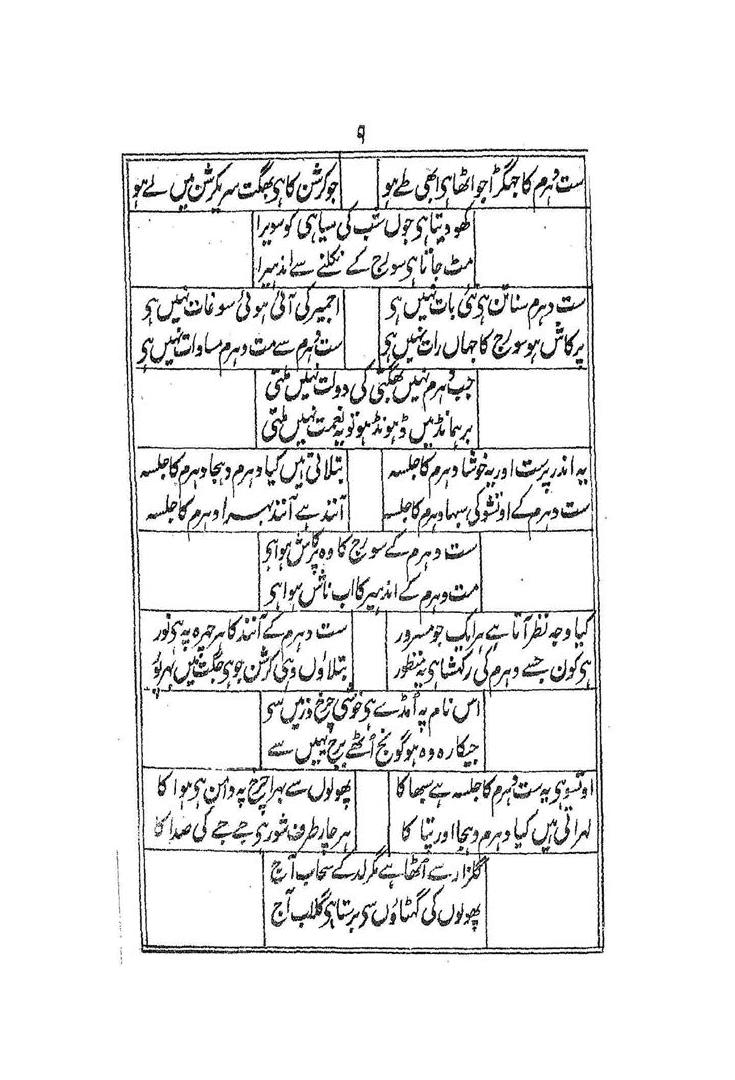 ۹
ست دہرم کا جہگڑا جو اٹھا ہی ابھی طے ہو جو کرشن کا ہی بھگت سریکرشن میں لے ہو
کھو دیتا ہی جوں شب کی سیاہی کو سویرا
مٹ جاتا ہی سورج کے نکلنے سے اندہیرا
ست دہرم سناتن ہی نئی بات نہیں ہی اجمیر کی آئی ہوئی سوغات نہیں ہی
پرکاش ہو سورج کا جہاں رات نہیں ہی ست دہرم سے مت دہرم مساوات نہیں ہی
جب دہرم نہیں بھگتی کی دولت نہیں ملتی
برہمانڈ میں ڈہونڈہو تو یہ نعمت نہیں ملتی
یہ اندر پرست اور یہ خوشا دہرم کا جلسہ بتلاتی ہیں کیا دہرم دہجا دہرم کا جلسہ
ست دہرم کے اوتشو کی سبہا دہرم کا جلسہ آنند ہے آنند بہرا دہرم کا جلسہ
ست دہرم کے سورج کا وہ پرکاش ہوا ہی
مت دہرم کے اندہیر کا اب ناش ہوا ہی
کیا وجہ نظر آتا ہے ہر ایک جو مسرور ست دہرم کے آنند کا ہر چہرہ پہ ہی نور
ہی کون جسے دہرم کی رکہشا ہی یہ منظور بتلاؤں وہی کرشن جو ہی جگت میں بہرپور
اس نام پہ اُمڈے ہی خوشی چرخ و زمیں سی
جیکارہ وہ ہو گونج اُٹھے برج یہیں سے
اوتسو ہی یہ ست دہرم کا جلسہ ہے سبھا کا پھولوں سے بہرا چرخ پہ دامن ہی ہوا کا
لہراتی ہیں کیا دہرم دہجا اور پتا کا ہر چار طرف شور ہی جے جے کی صدا کا
گلزار سے اُٹھا ہے مگر لد کے سحاب آج
پھولوں کی گھٹاؤں سی برستا ہی گلاب آج